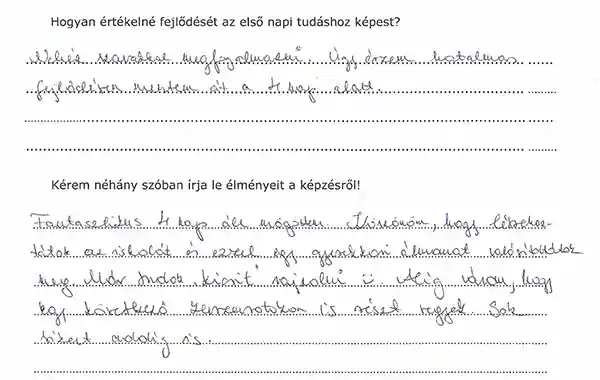 Hogyan értékelné fejlődését az első napi tudáshoz képest?
Nehéz szavakkal megfogalmazni. Úgy érzem hatalmas
fejlődésen mentem át a 4 nap alatt.
Kérem néhány szóban írja le élményeit a képzésről!
Fantasztikus 4 nap áll mögöttem. Köszönöm, hogy létrehoz-
tátok az iskolát és ezzel egy gyerekkori álmomat valósítottátok
meg. Már tudok "kicsit" rajzolni :). Alig várom, hogy
egy következő tanfolyamotokon is részt vegyek. Sok
sikert addig is.